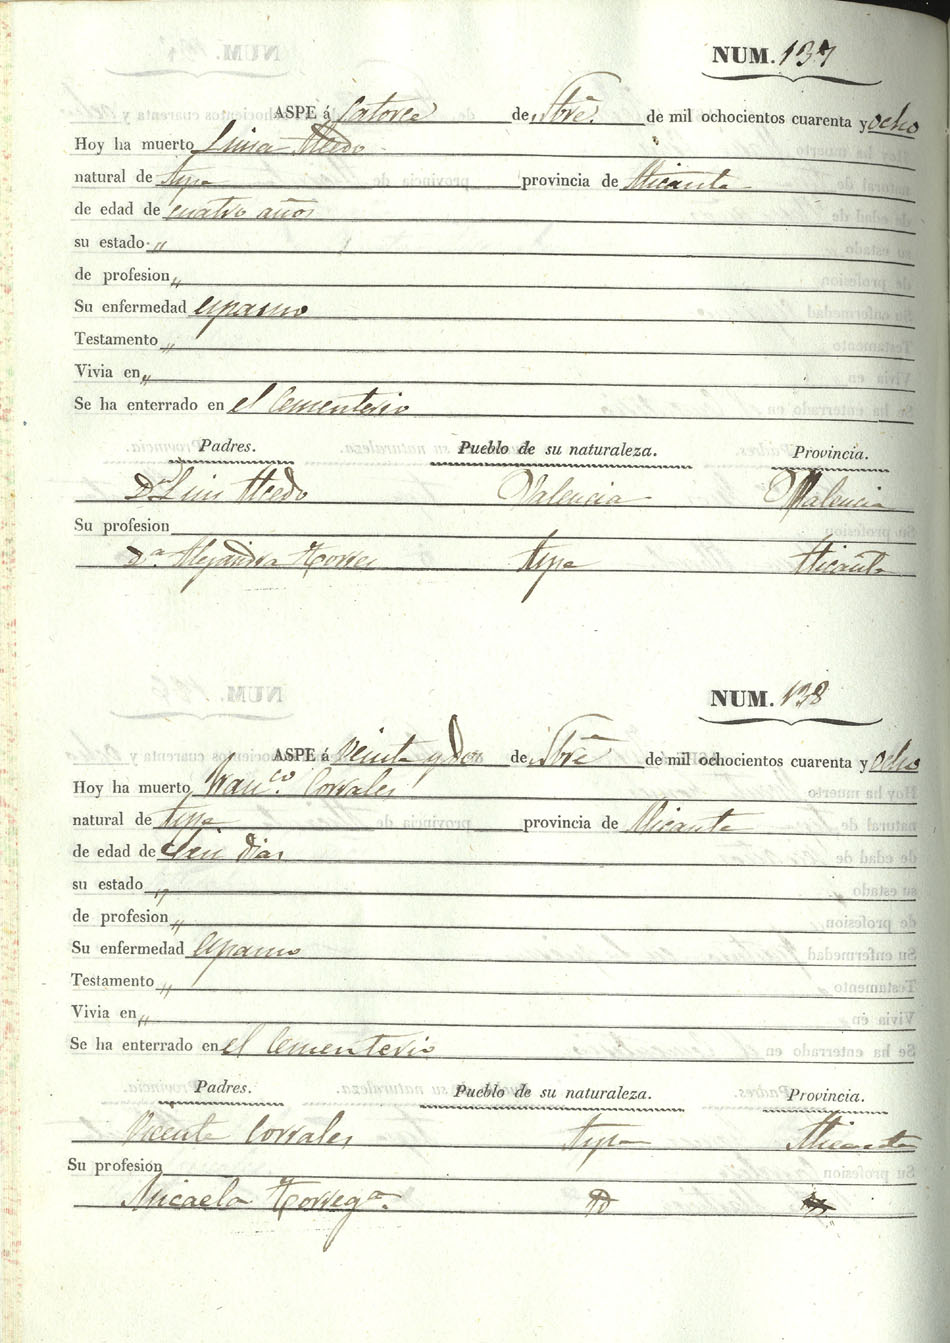 NUM. 137
ASPE á Catorce de de mil ochocientos cuarenta y ocho
Hoy ha muerto Luisa Alcedo
natural de Aspe provincia de Alicante
de edad de cuatro años
su estado "
de profesion "
Su enfermedad espasmo
Testamento "
Vivia en "
Se ha enterrado en el Cementerio
Padres. Pueblo de su naturaleza. Provincia.
Dn. Luis Alcedo Valencia Valencia
Su profesion
Da. Alejandra Torres Aspe Alicante
NUM. 138
ASPE á Veinte y dos de de mil ochocientos cuarenta y ocho
Hoy ha muerto Franco. Corrales
natural de Aspe provincia de Alicante
de edad de Seis dias
su estado "
de profesion "
Su enfermedad espasmo
Testamento "
Vivia en "
Se ha enterrado en el Cementerio
Padres. Pueblo de su naturaleza. Provincia.
Vicente Corrales Aspe Alicante
Su profesion
Micaela